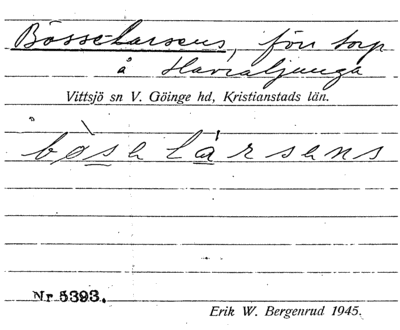 Bösse-Larsens, förr torp
å Havraljunga
Vittsjö sn V. Göinge hd, Kristianstads län.
bø̀sa lársans
Nr 5393.
Erik W. Bergenrud 1945.